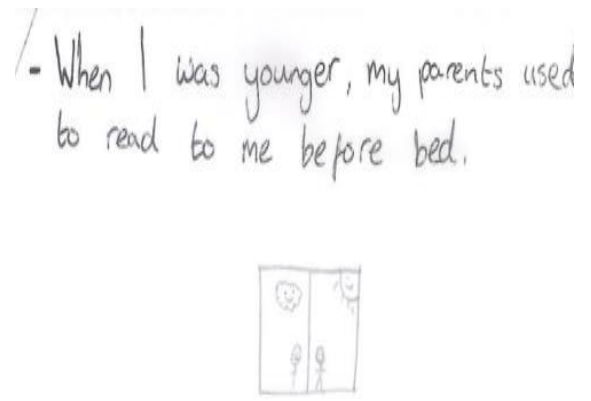 - When I was younger, my parents used
to read to me before bed.